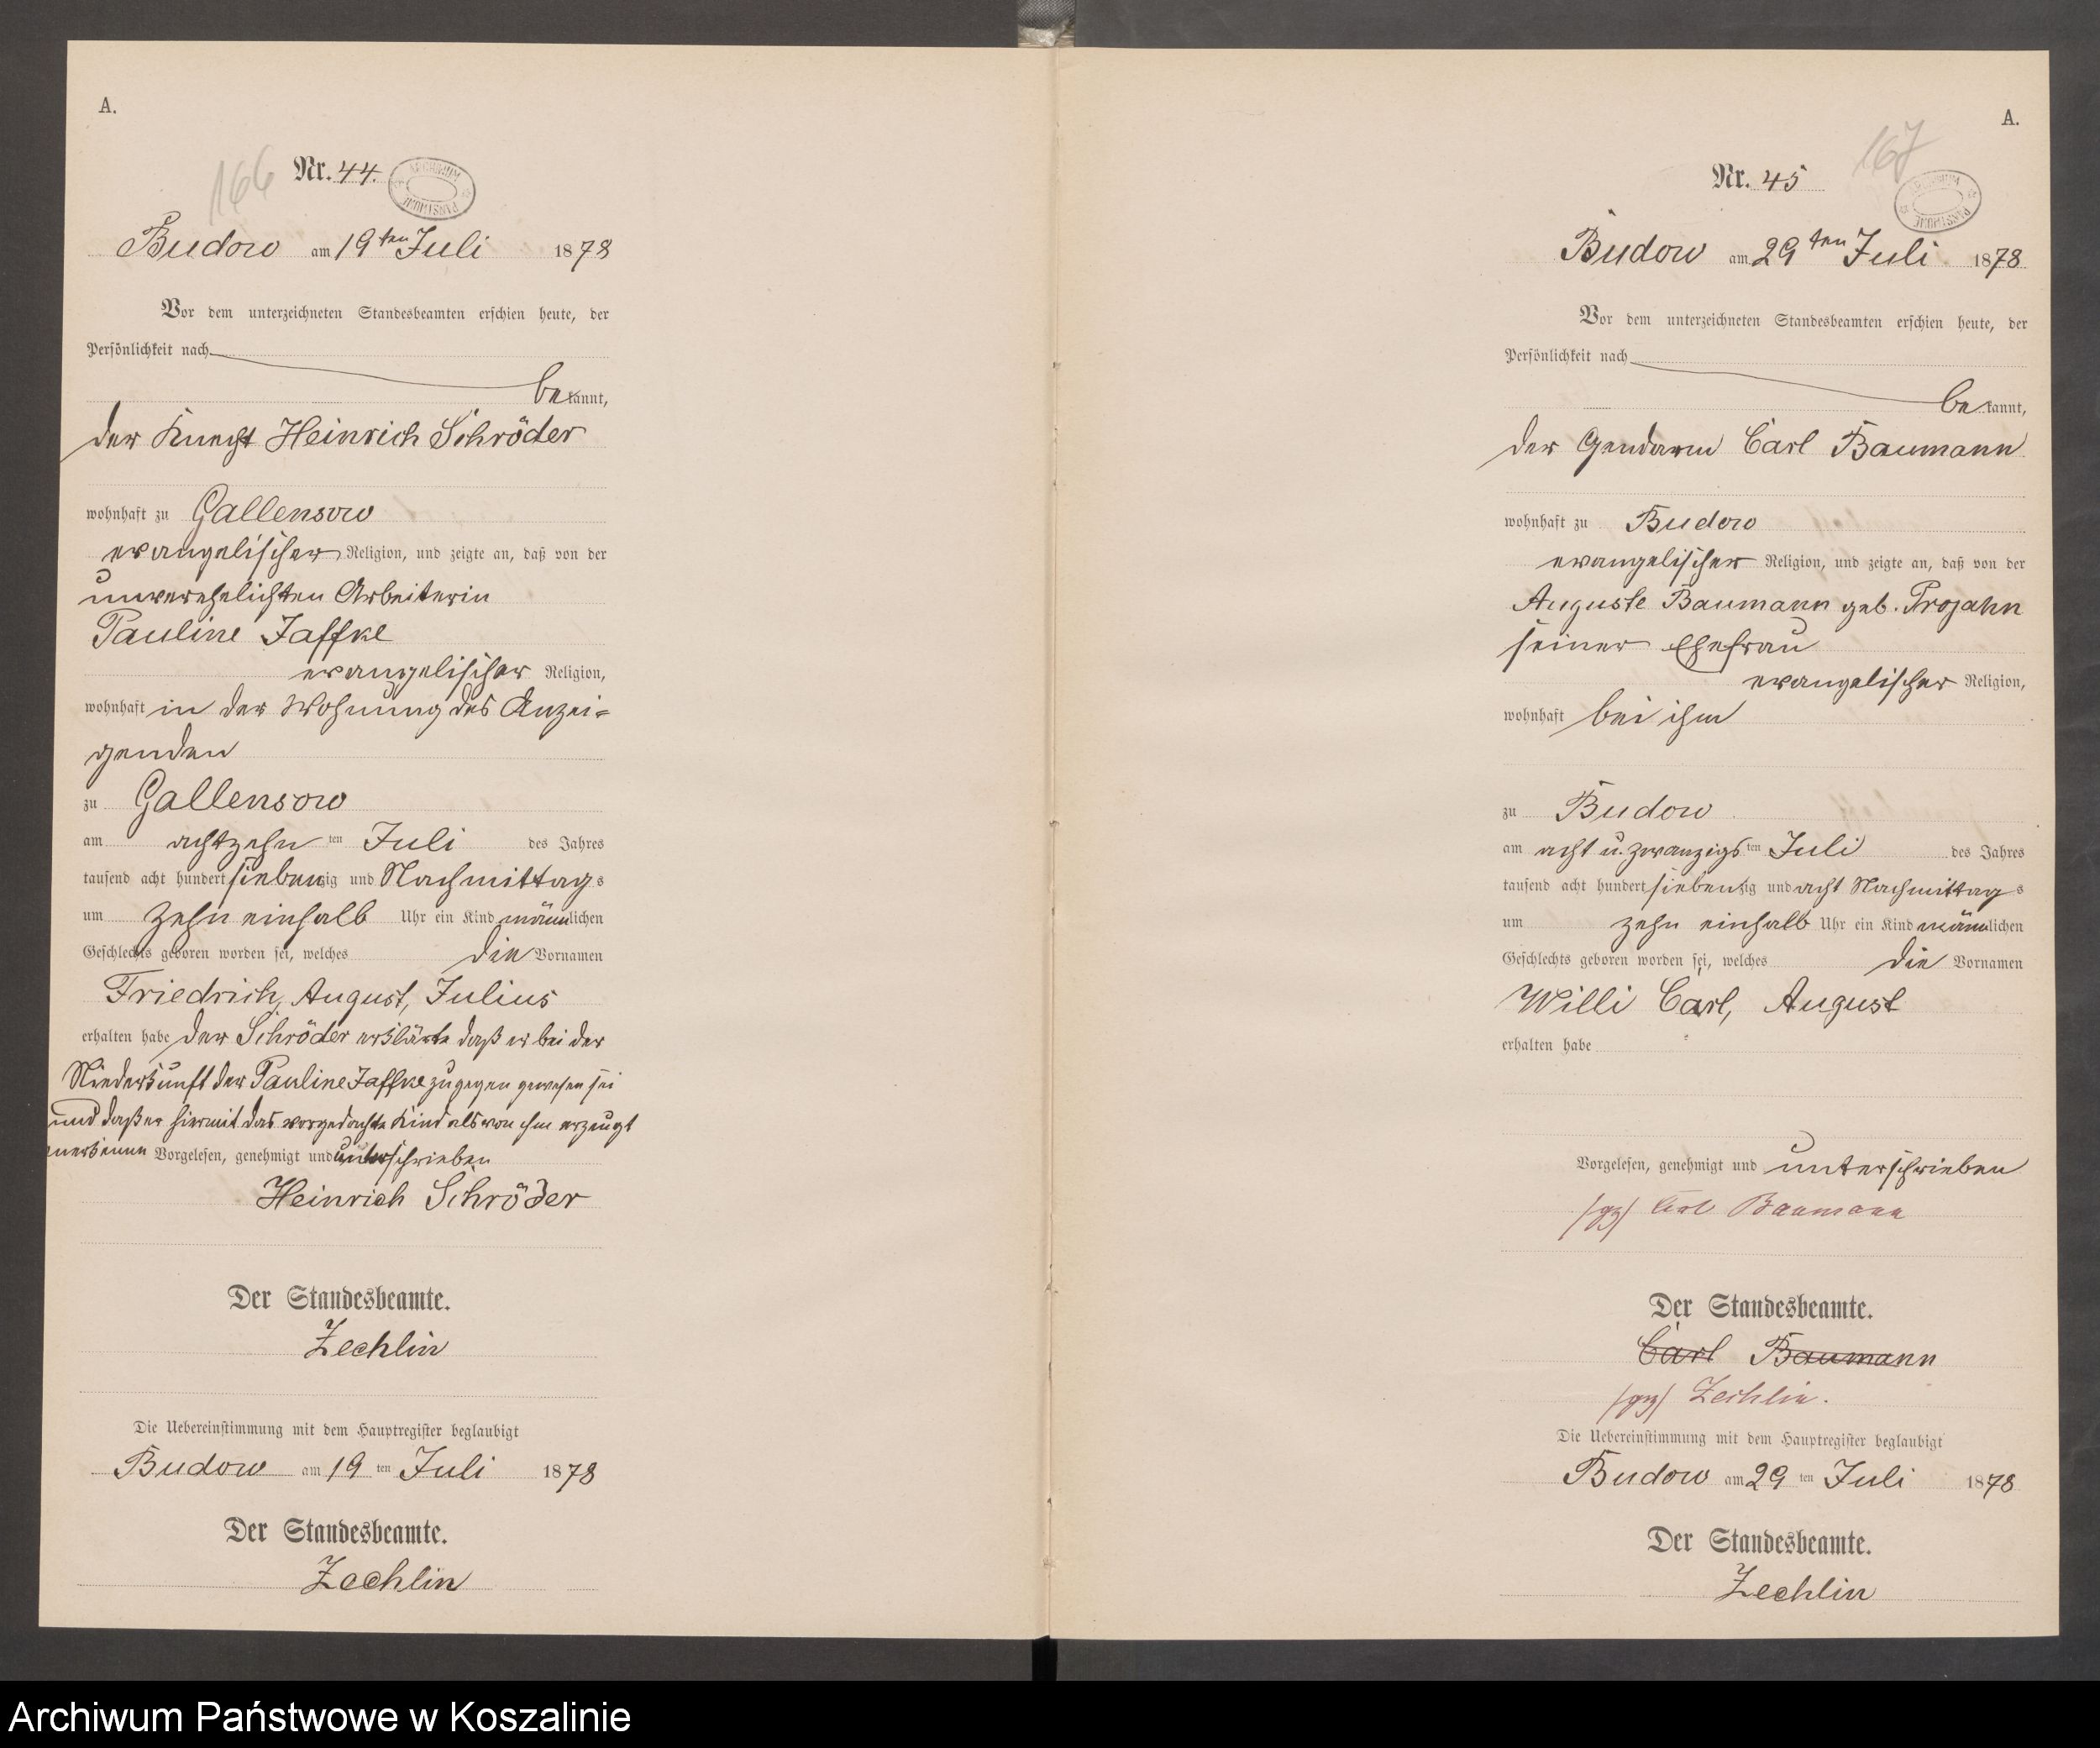 A.
166
Nr. 44.
ARCHIWUM PAŃSTWOWE
Budow am 19ten Juli 1878
Vor dem unterzeichneten Standesbeamten erschien heute, der
Persönlichkeit nach
bekannt,
der Knecht Heinrich Schröder
wohnhaft zu Gallensow
evangelischer Religion, und zeigte an, daß von der
unverehelichten Arbeiterin
Pauline Jaffke
evangelischer Religion,
wohnhaft in der Wohnung des Anzei=
genden
zu Gallensow
am achtzehn ten Juli des Jahres
tausend acht hundert siebenzig und Nachmittags
um zehn einhalb Uhr ein Kind männlichen
Geschlechts geboren worden sei, welches die Vornamen
Friedrich, August, Julius
erhalten habe der Schröder erklärte daß er bei der
Niederkunft der Pauline Jaffke zugegen gewesen sei
und daß er hiermit das vorgedachte Kind als von ihm erzeugt
anerkenne Vorgelesen, genehmigt und unterschrieben
Heinrich Schröder
Der Standesbeamte.
Zechlin
Die Uebereinstimmung mit dem Hauptregister beglaubigt
Budow am 19 ten Juli 1878
Der Standesbeamte.
Zechlin
A.
167
Nr. 45
ARCHIWUM PAŃSTWOWE
Budow am 29ten Juli 1878
Vor dem unterzeichneten Standesbeamten erschien heute, der
Persönlichkeit nach
bekannt,
der Gendarm Carl Baumann
wohnhaft zu Budow
evangelischer Religion, und zeigte an, daß von der
Auguste Baumann geb. Projahn
seiner Ehefrau
evangelischer Religion,
wohnhaft bei ihm
zu Budow
am acht u. zwanzigs ten Juli des Jahres
tausend acht hundert siebenzig und acht Nachmittags
um zehn einhalb Uhr ein Kind männlichen
Geschlechts geboren worden sei, welches die Vornamen
Willi Carl, August
erhalten habe
Vorgelesen, genehmigt und unterschrieben
/gz/ Carl Baumann
Der Standesbeamte.
Carl Baumann
/gz/ Zechlin.
Die Uebereinstimmung mit dem Hauptregister beglaubigt
Budow am 29 ten Juli 1878
Der Standesbeamte.
Zechlin
Archiwum Państwowe w Koszalinie